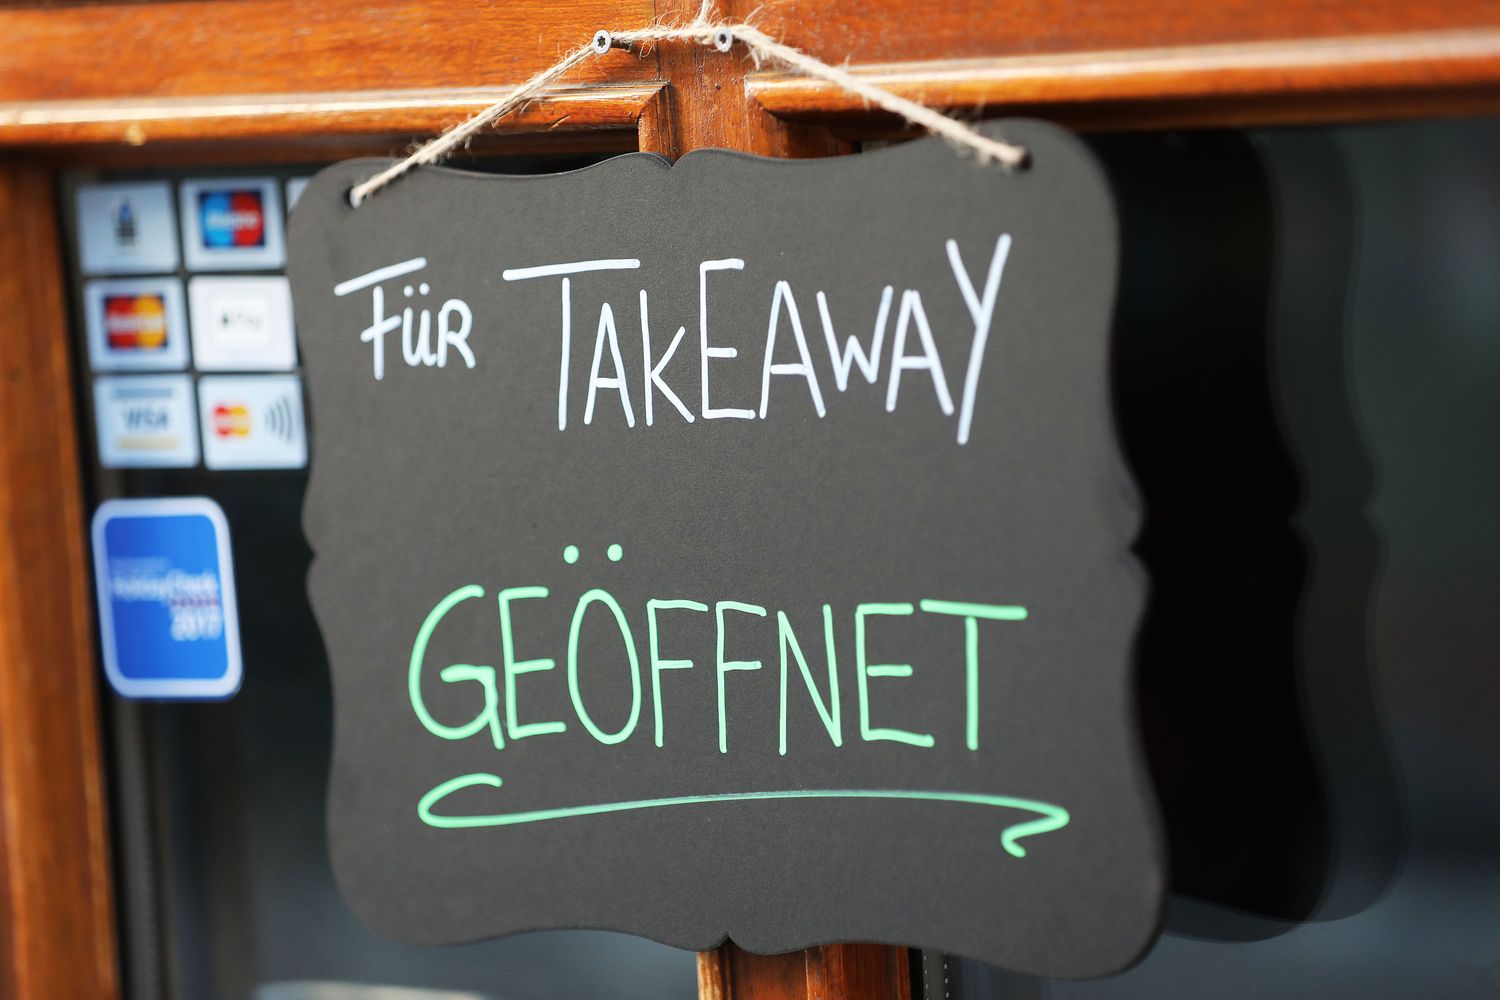 FÜR TAKEAWAY
GEÖFFNET
VISA
HolidayCheck
2017